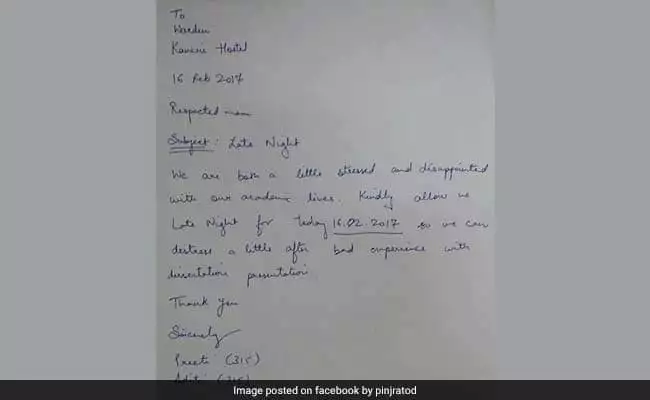 To
Warden
Kaveri Hostel
16 Feb 2017
Respected mam
Subject: Late Night
We are both a little stressed and disappointed
with our academic lives. Kindly allow us
Late Night for today 16.02.2017 so we can
destress a little after bad experience with
dissertation presentation
Thank you
Sincerely
Preeti (315)
Aditi (315)
Image posted on facebook by pinjratod